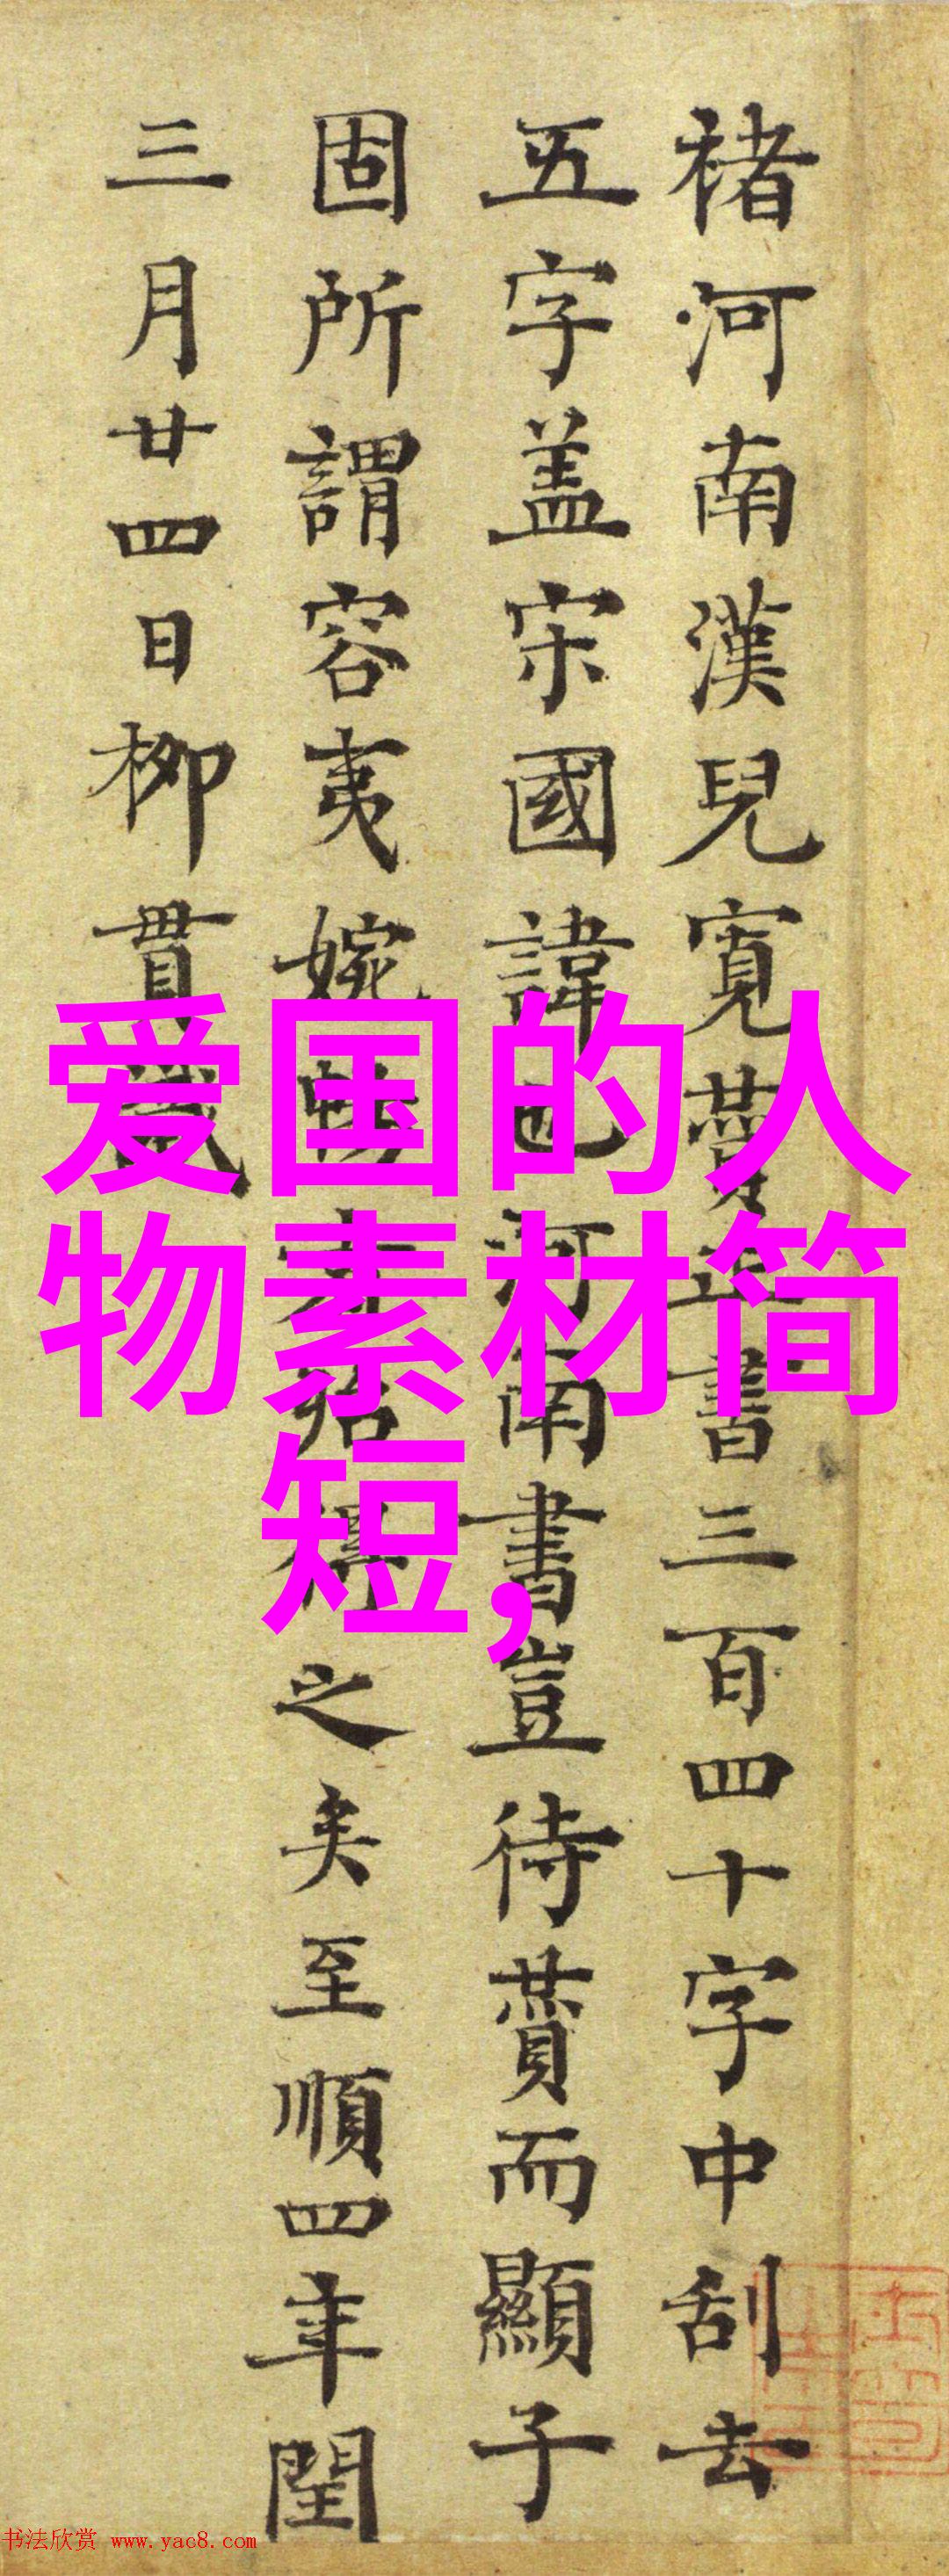 褚河南漢兒寬賛正書三百四十字中刮去
五字盖宋國諱也河南書豈待賛而顯子
固所謂容夷婉之矣至順四年閏
三月廿四日柳貫識
爱国的人
物素材简
短,
书法欣赏 www.yac8.com